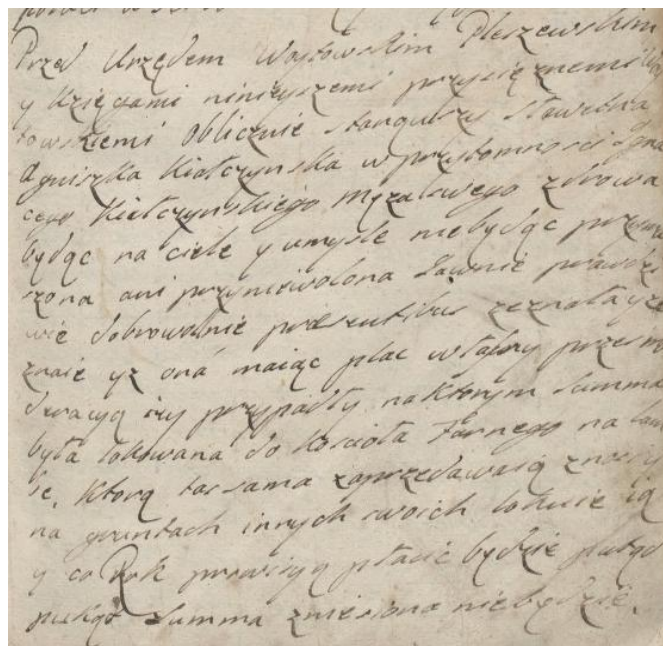 Przed Urzędem Woytowskim Pleszewskim
y Xsięgami ninieyszemi przysiężnemi
towskiemi Oblicznie stanąwszy Sławetna
Agniszka Kiełczynska w przytomnosci Igna
cego Kiełczynskiego Męża swego zdrowa
będąc na ciele y umysle niebędąc przymu
szona ani przyniewolona Jawnie prawdzi
wie dobrowolnie praesentibus zeznała y ze
znaie yz oná maiąc plac własny przez in
dwacyą iey przypadły na ktorym Summa
była lokowana do Kościoła Farnego na
ktorą tas sama zaprzedawaią znosi y
na gruntach innych swoich lokuie ią
y co Rok prowizyą płacić będzie potąd
pukąd Summa zniesiona niebędzie.